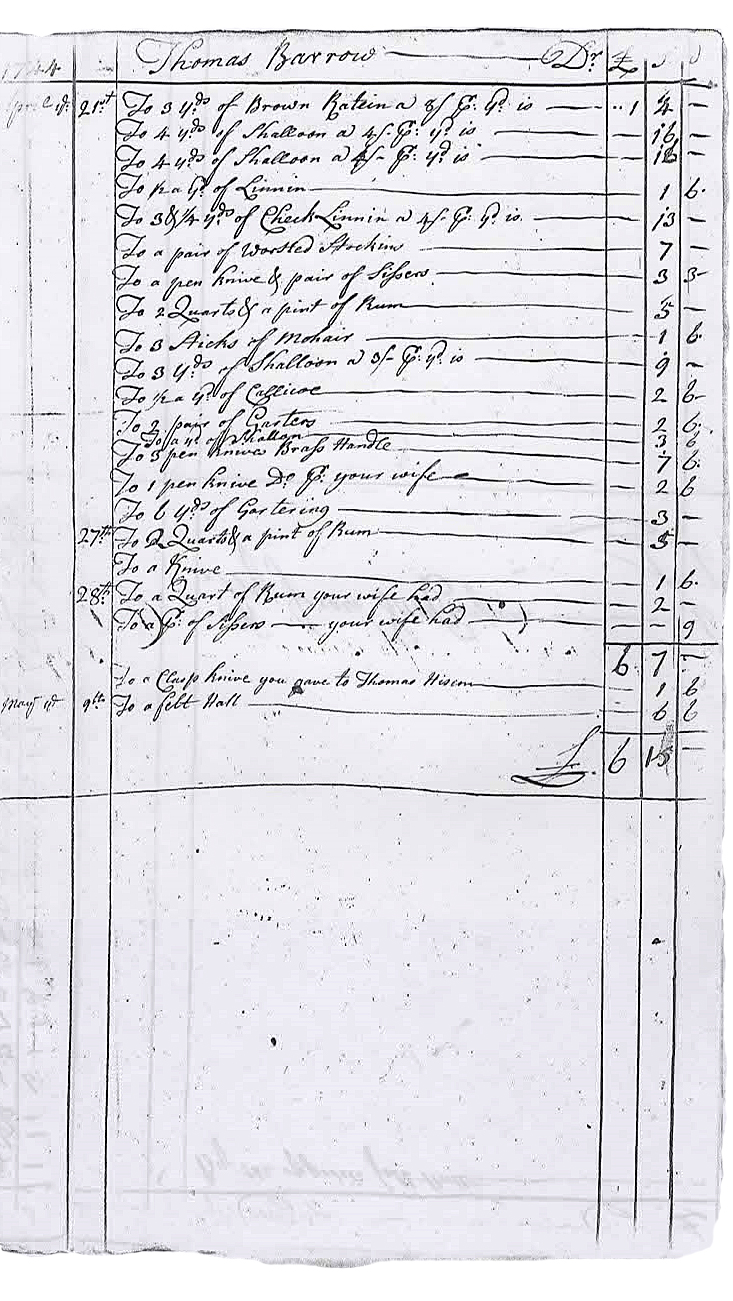 1744 Thomas Barrow Dr £ S D
April ye 21st To 3 yds of Brown Ratein a 8/ P: yd is 1 4 —
To 4 yds of Shalloon a 4/- P: yd is — 16 —
To 4 yds of Shalloon a 4/- P: yd is — 16 —
To ½ a yd of Linnin — 1 6
To 3 & ¼ yds of Check Linnin a 4/- P: yd is — 13 —
To a pair of Worsted Stockins — 7 —
To a pen knive & pair of Sissers — 3 3
To 2 Quarts & a pint of Rum — 5 —
To 3 Sticks of Mohair — 1 6
To 3 yds of Shalloon a 3/- P: yd is — 9 —
To ½ a yd of Callicoe — 2 6
To 2 pair of Garters — 2 6
To a yd of Shalloon — 3 6
To 3 pen knives Brass Handle — 7 6
To 1 pen knive Do P: your wife — 2 6
To 6 yds of Gartering — 3 —
27th To 2 Quarts & a pint of Rum — 5 —
To a Knive — 1 6
28th To a Quart of Rum your wife had — 2 —
To a P: of Sissers — your wife had — — 9
6 7 —
To a Clasp knive you gave to Thomas — 1 6
May ye 9th To a felt Hatt — 6 6
£ 6 15 —